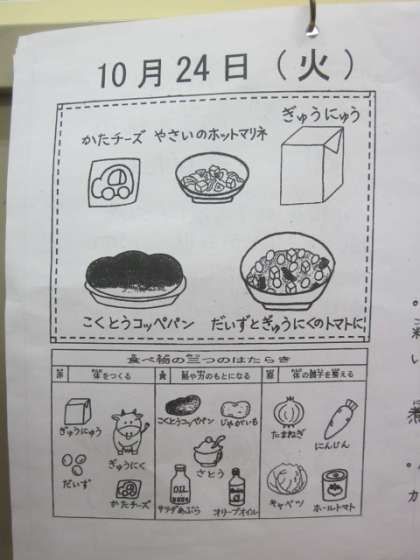 10月24日（火）
かたチーズ やさいのホットマリネ ぎゅうにゅう
こくとうコッペパン だいずとぎゅうにくのトマトに
食べ物の三つのはたらき
赤 体をつくる 黄 熱や力のもとになる 緑 体の調子を整える
ぎゅうにゅう
ぎゅうにく
だいず
かたチーズ
こくとうコッペパン じゃがいも
さとう
OIL
サラダあぶら オリーブオイル
たまねぎ にんじん
キャベツ ホールトマト